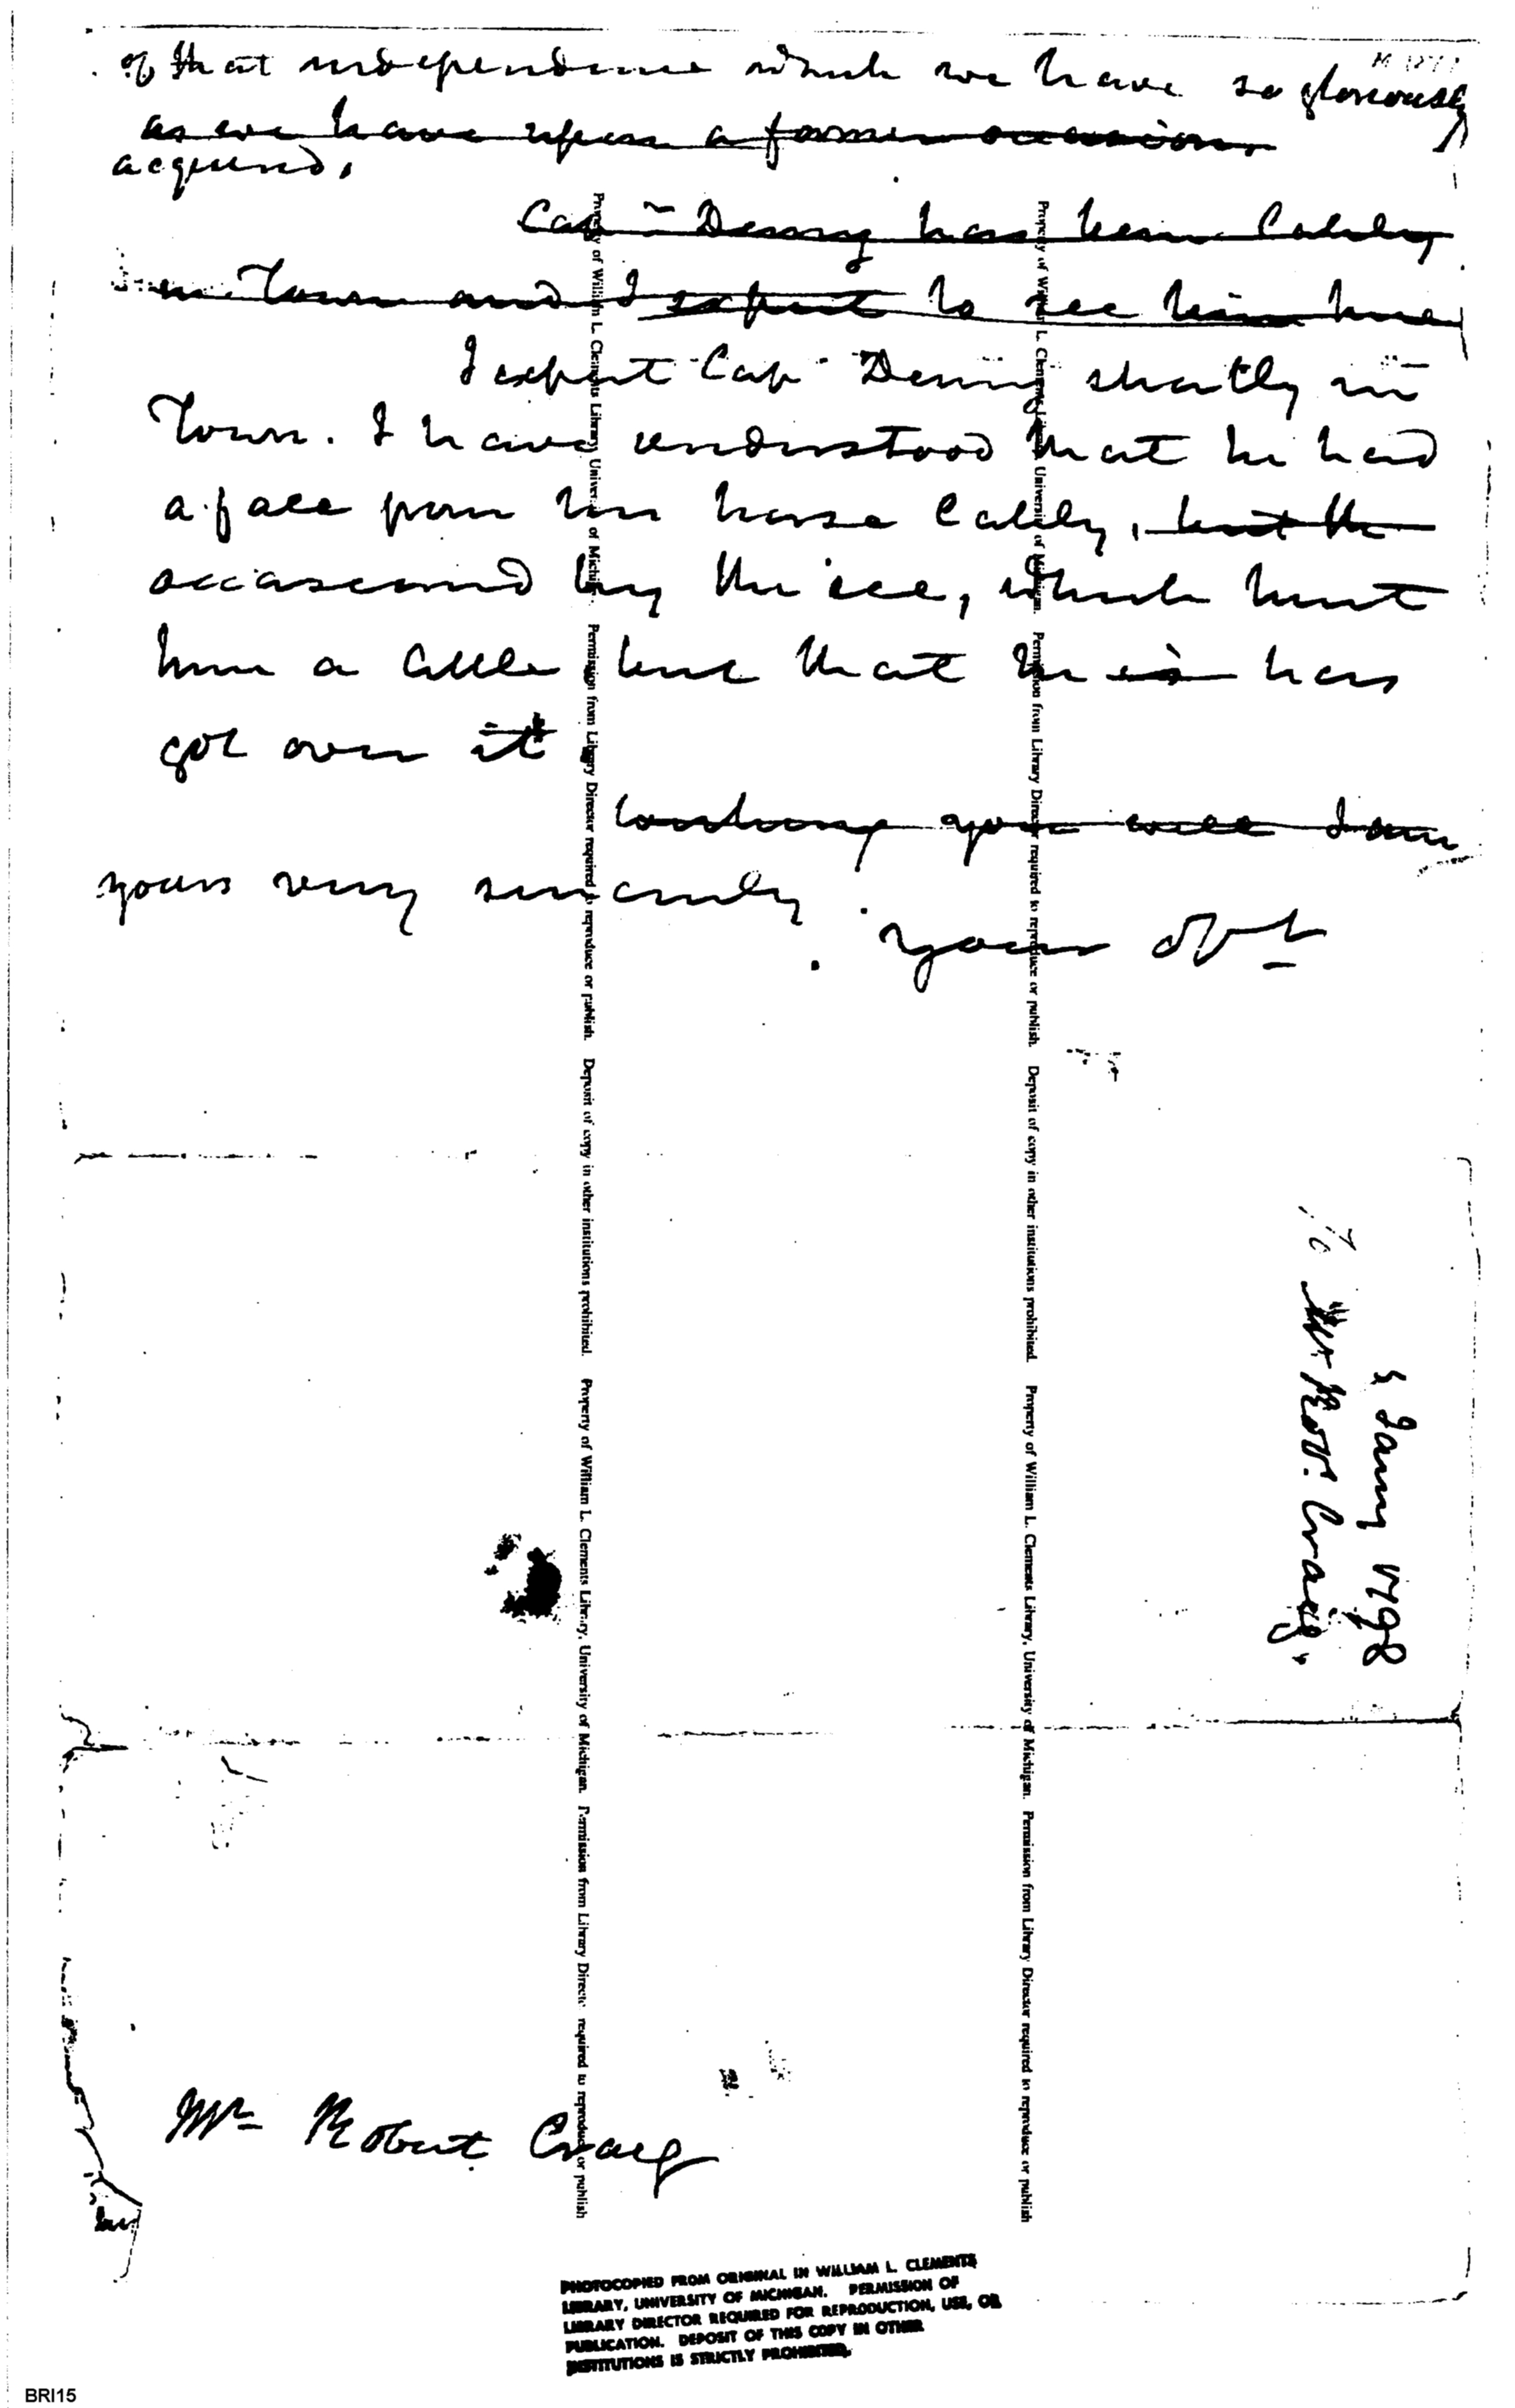 of that independence which we have so gloriously
as we have upon a former occasion.
acquired.
Cap~ Denny has been lately
in Town and I expect to see him here
I expect Cap~ Denny shortly in
Town. I have understood that he had
a fall from his horse lately, but the
occasioned by the ice, which hurt
him a little but that he is has
got over it
wishing you well I am
yours very sincerely
your obt
To Mr. Robt. Craig,
5 Jany 1798
Mr Robert Craig
Property of William L. Clements Library, University of Michigan. Permission from Library Director required to reproduce or publish. Deposit of copy in other institutions prohibited. Property of William L. Clements Library, University of Michigan. Permission from Library Director required to reproduce or publish
Property of William L. Clements Library, University of Michigan. Permission from Library Director required to reproduce or publish. Deposit of copy in other institutions prohibited. Property of William L. Clements Library, University of Michigan. Permission from Library Director required to reproduce or publish
PHOTOCOPIED FROM ORIGINAL IN WILLIAM L. CLEMENTS
LIBRARY, UNIVERSITY OF MICHIGAN. PERMISSION OF
LIBRARY DIRECTOR REQUIRED FOR REPRODUCTION, USE, OR
PUBLICATION. DEPOSIT OF THIS COPY IN OTHER
INSTITUTIONS IS STRICTLY PROHIBITED.
BRI15